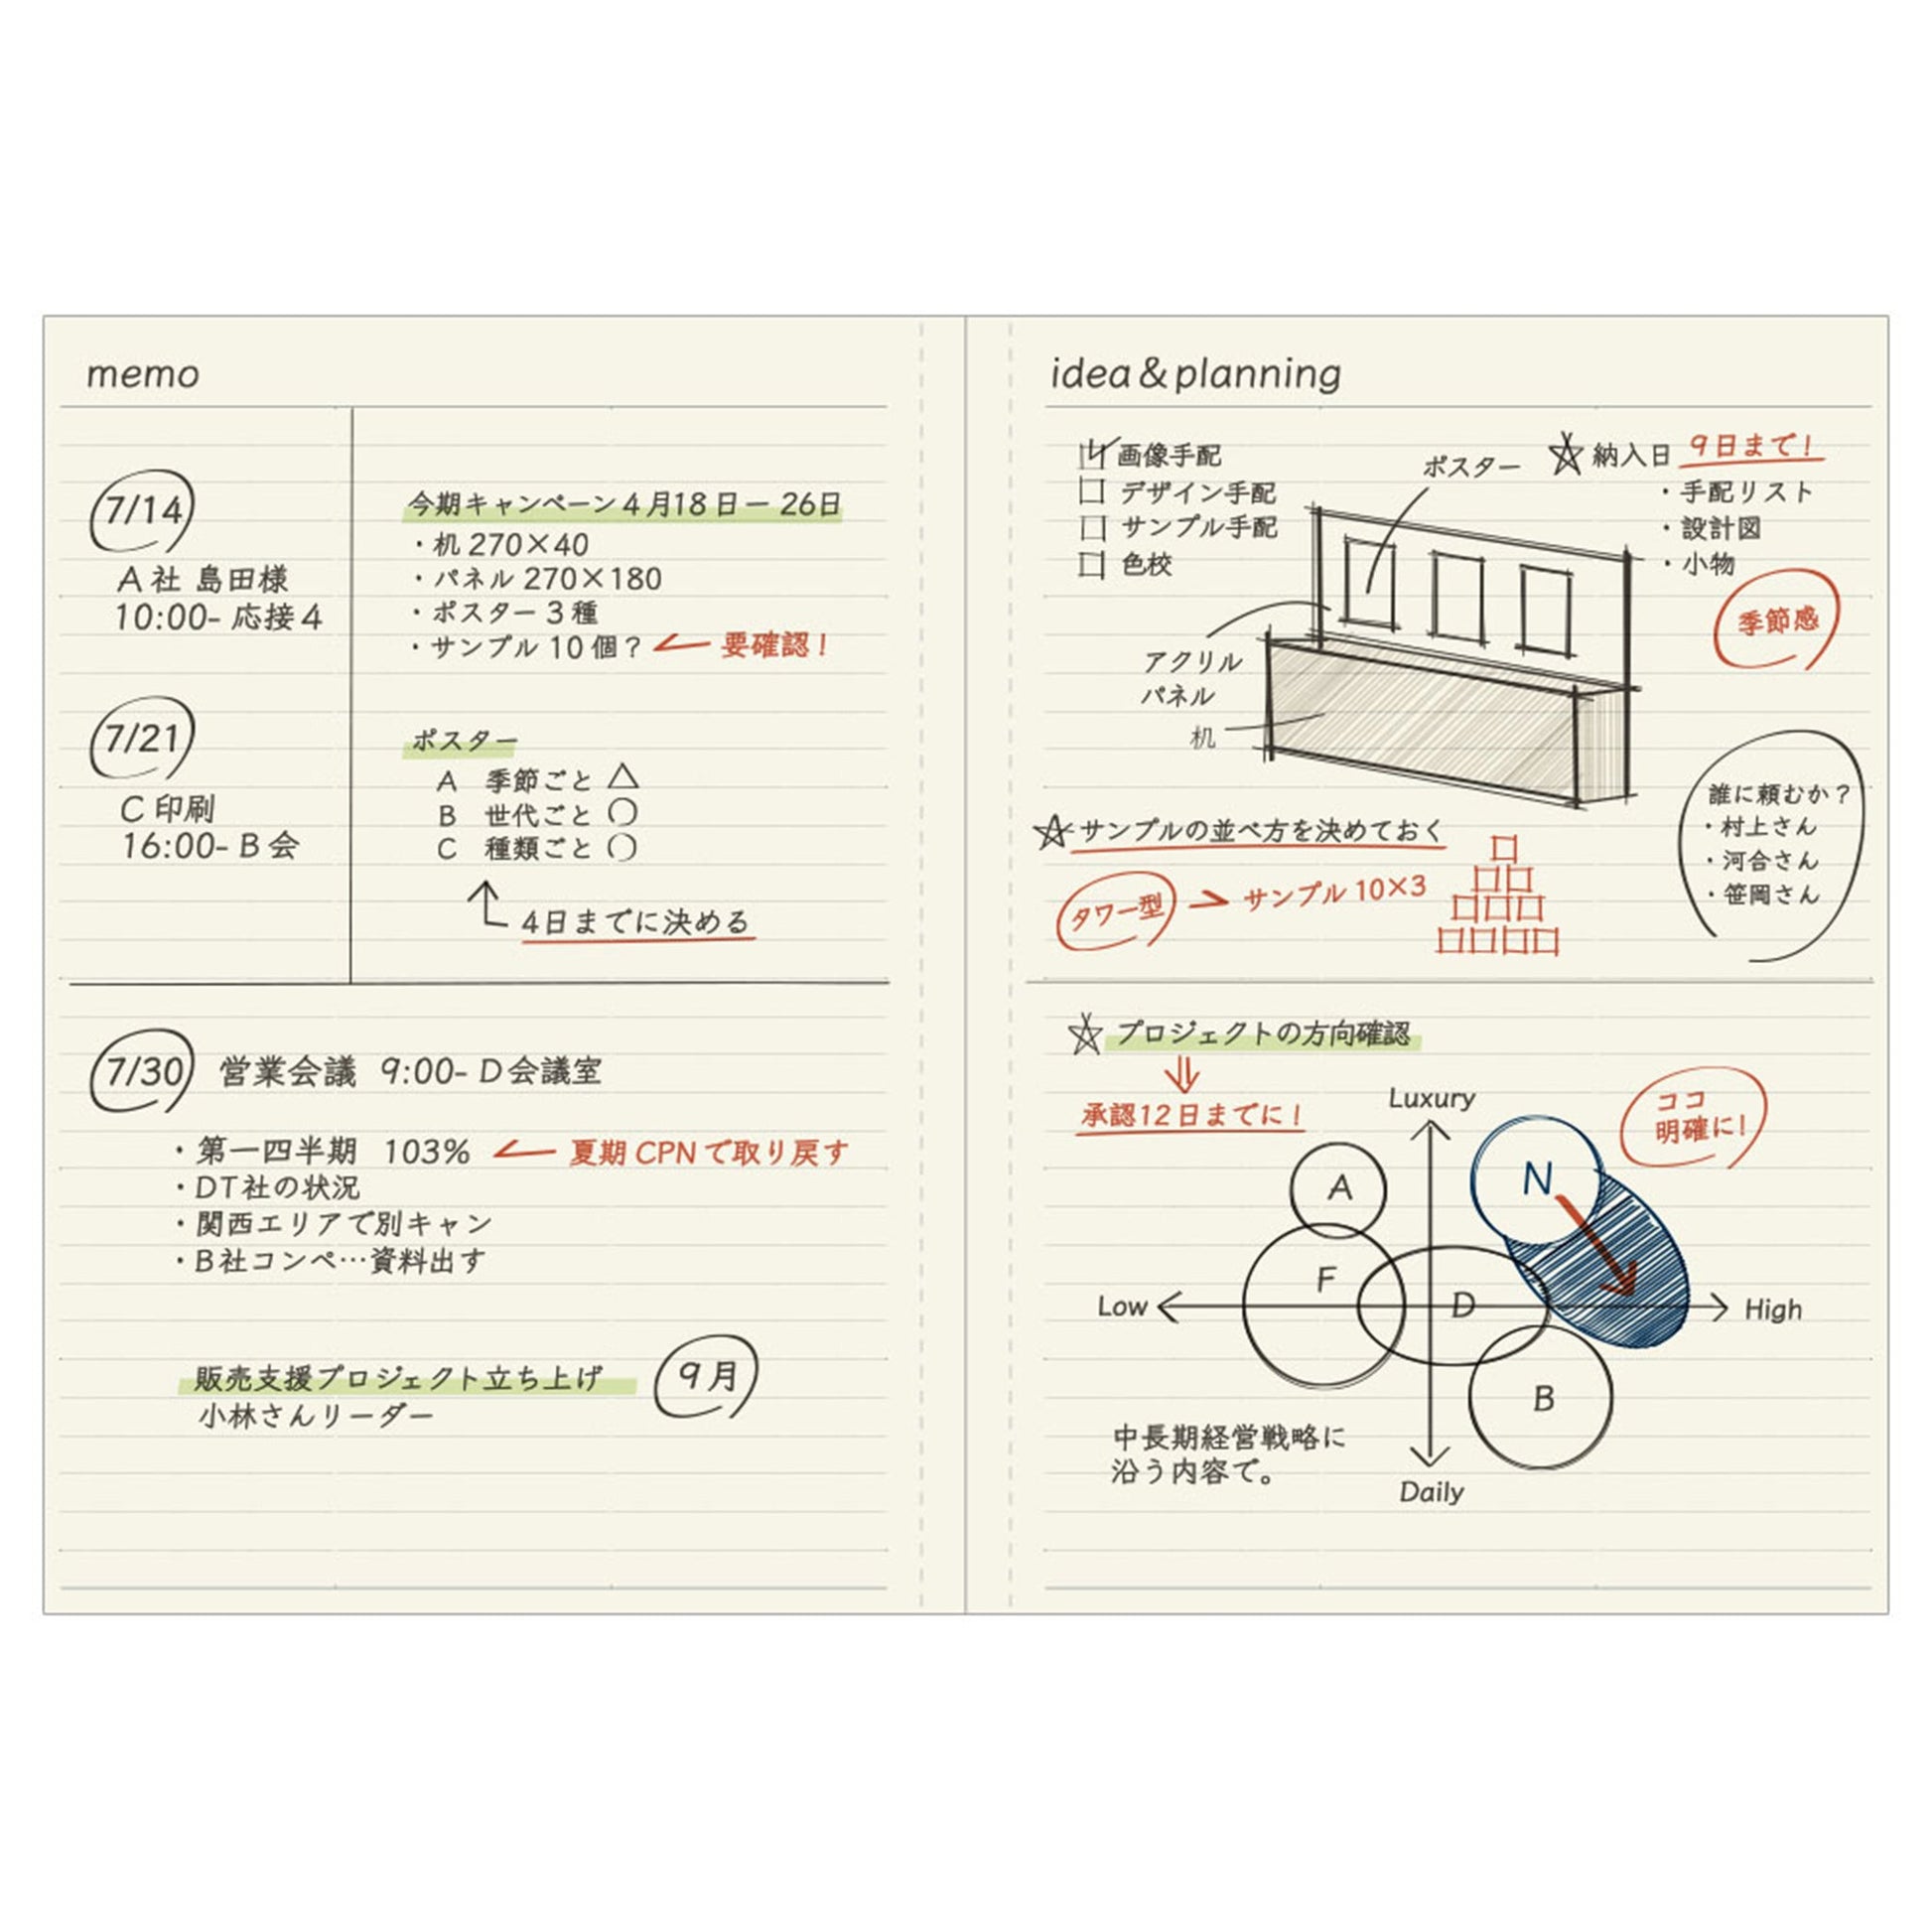 memo
7/14
A社 島田様
10:00- 応接4
今期キャンペーン4月18日ー26日
・机 270×40
・パネル 270×180
・ポスター 3種
・サンプル 10個？ 要確認！
7/21
C印刷
16:00- B会
ポスター
A 季節ごと △
B 世代ごと ○
C 種類ごと ○
4日までに決める
7/30 営業会議 9:00- D会議室
・第一四半期 103% 夏期CPNで取り戻す
・DT社の状況
・関西エリアで別キャン
・B社コンペ…資料出す
販売支援プロジェクト立ち上げ 9月
小林さんリーダー
idea & planning
画像手配
デザイン手配
サンプル手配
色校
ポスター
アクリル
パネル
机
☆納入日 9日まで！
・手配リスト
・設計図
・小物
季節感
誰に頼むか？
・村上さん
・河合さん
・笹岡さん
☆サンプルの並べ方を決めておく
タワー型 サンプル 10×3
☆プロジェクトの方向確認
承認12日までに！
Luxury
ココ
明確に！
A
N
F
D
Low
High
B
中長期経営戦略に
沿う内容で。
Daily